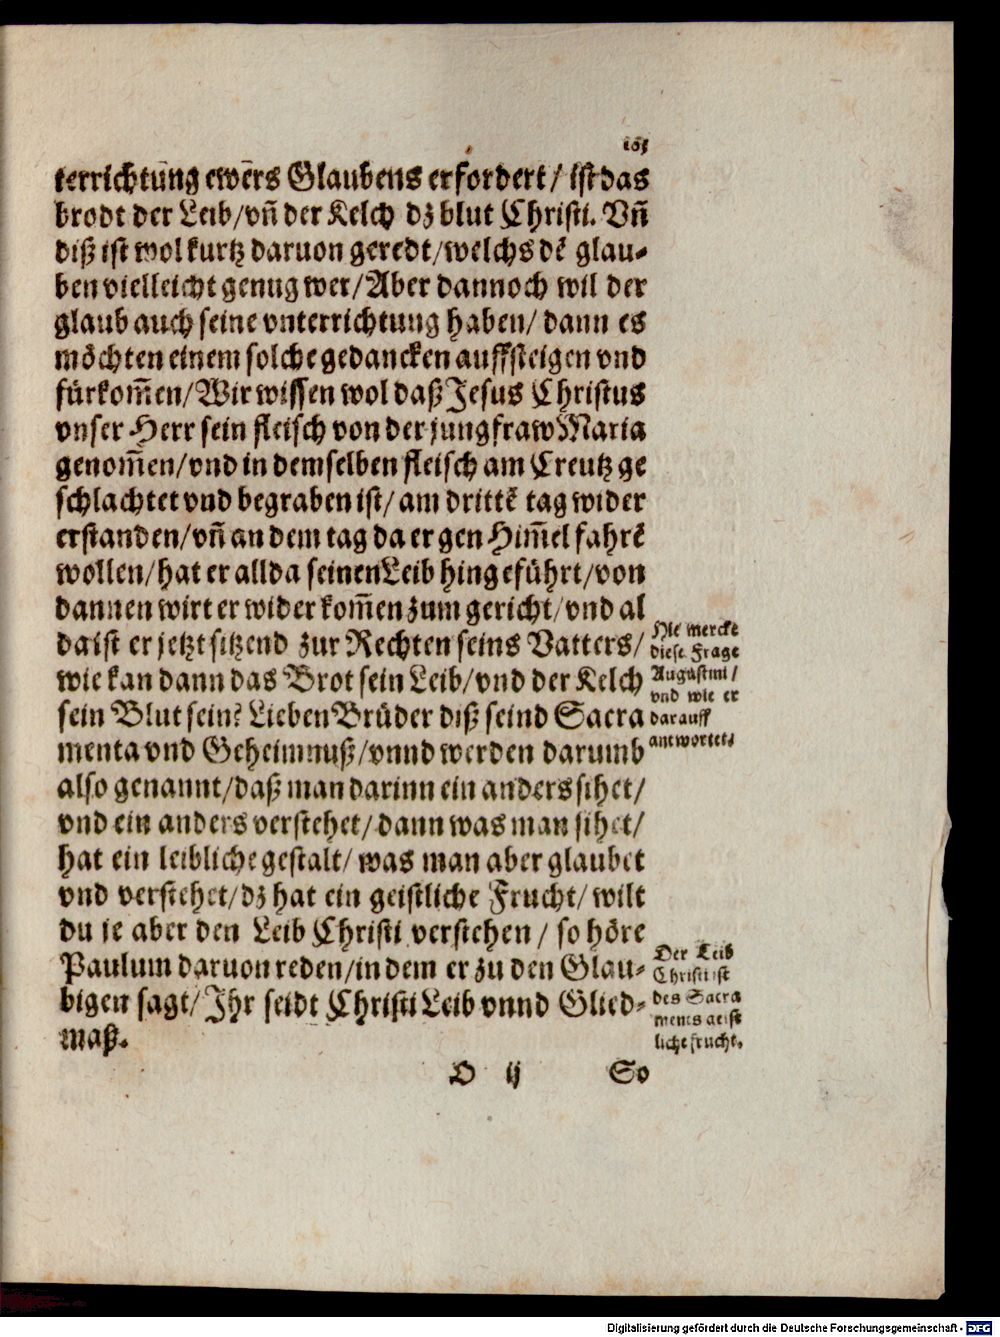 terrichtung ewers Glaubens erfordert / ist das
brodt der Leib/vñ der Kelch dz blut Christi. Vñ
diß ist wol kurtz daruon geredt/welchs dẽ glau-
ben vielleicht genug wer/Aber dannoch wil der
glaub auch seine vnterrichtung haben/ dann es
möchten einem solche gedancken auffsteigen vnd
fürkom̃en/Wir wissen wol daß Jesus Christus
vnser Herr sein fleisch von der jungfraw Maria
genom̃en/vnd in demselben fleisch am Creutz ge
schlachtet vnd begraben ist/ am drittẽ tag wider
erstanden/vñ an dem tag da er gen Him̃el fahrẽ
wollen/hat er allda seinen Leib hingeführt/von
dannen wirt er wider kom̃en zum gericht/vnd al
da ist er jetzt sitzend zur Rechten seins Vatters/
wie kan dann das Brot sein Leib/vnd der Kelch
sein Blut sein? Lieben Brüder diß seind Sacra
menta vnd Geheimnuß/vnnd werden darumb
also genannt/daß man darinn ein anders sihet/
vnd ein anders verstehet/dann was man sihet/
hat ein leibliche gestalt/ was man aber glaubet
vnd verstehet/dz hat ein geistliche Frucht/ wilt
du je aber den Leib Christi verstehen / so höre
Paulum daruon reden/in dem er zu den Glau-
bigen sagt/Ihr seidt Christi Leib vnnd Glied-
maß.
Hie mercke
diese Frage
Augustini/
vnd wie er
darauff
antwortet.
Der Leib
Christi ist
des Sacra
ments geist
liche frucht.
O ij So
Digitalisierung gefördert durch die Deutsche Forschungsgemeinschaft - DFG